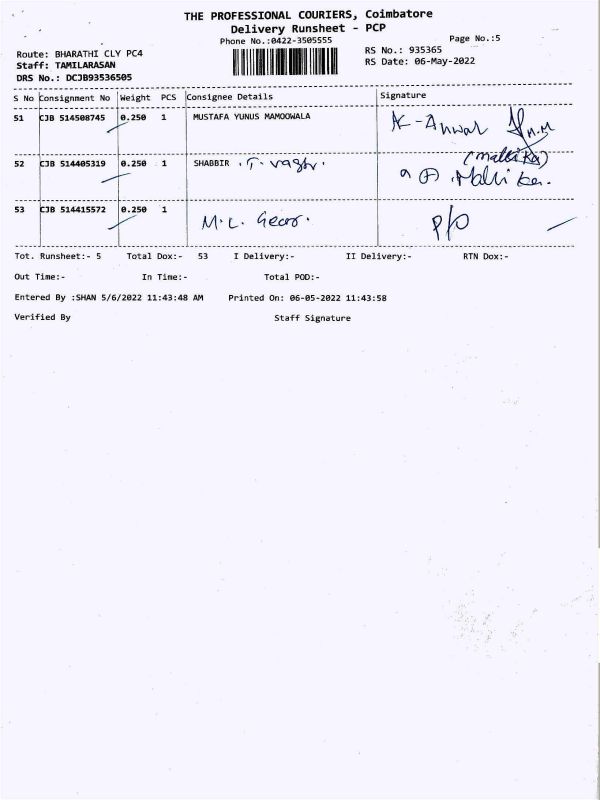 THE PROFESSIONAL COURIERS, Coimbatore
Delivery Runsheet - PCP
Phone No.:0422-3505555
Page No.:5
Route: BHARATHI CLY PC4
RS No.: 935365
Staff: TAMILARASAN
RS Date: 06-May-2022
DRS No.: DCJB93536505
S No Consignment No Weight PCS Consignee Details Signature
51 CJB 514508745 0.250 1 MUSTAFA YUNUS MAMOOWALA K-Anwar M.M
(mallika)
52 CJB 514405319 0.250 1 SHABBIR . T. Mallika.
53 CJB 514415572 0.250 1 M.L. P/O
Tot. Runsheet:- 5 Total Dox:- 53 I Delivery:- II Delivery:- RTN Dox:-
Out Time:- In Time:- Total POD:-
Entered By :SHAN 5/6/2022 11:43:48 AM Printed On: 06-05-2022 11:43:58
Verified By Staff Signature